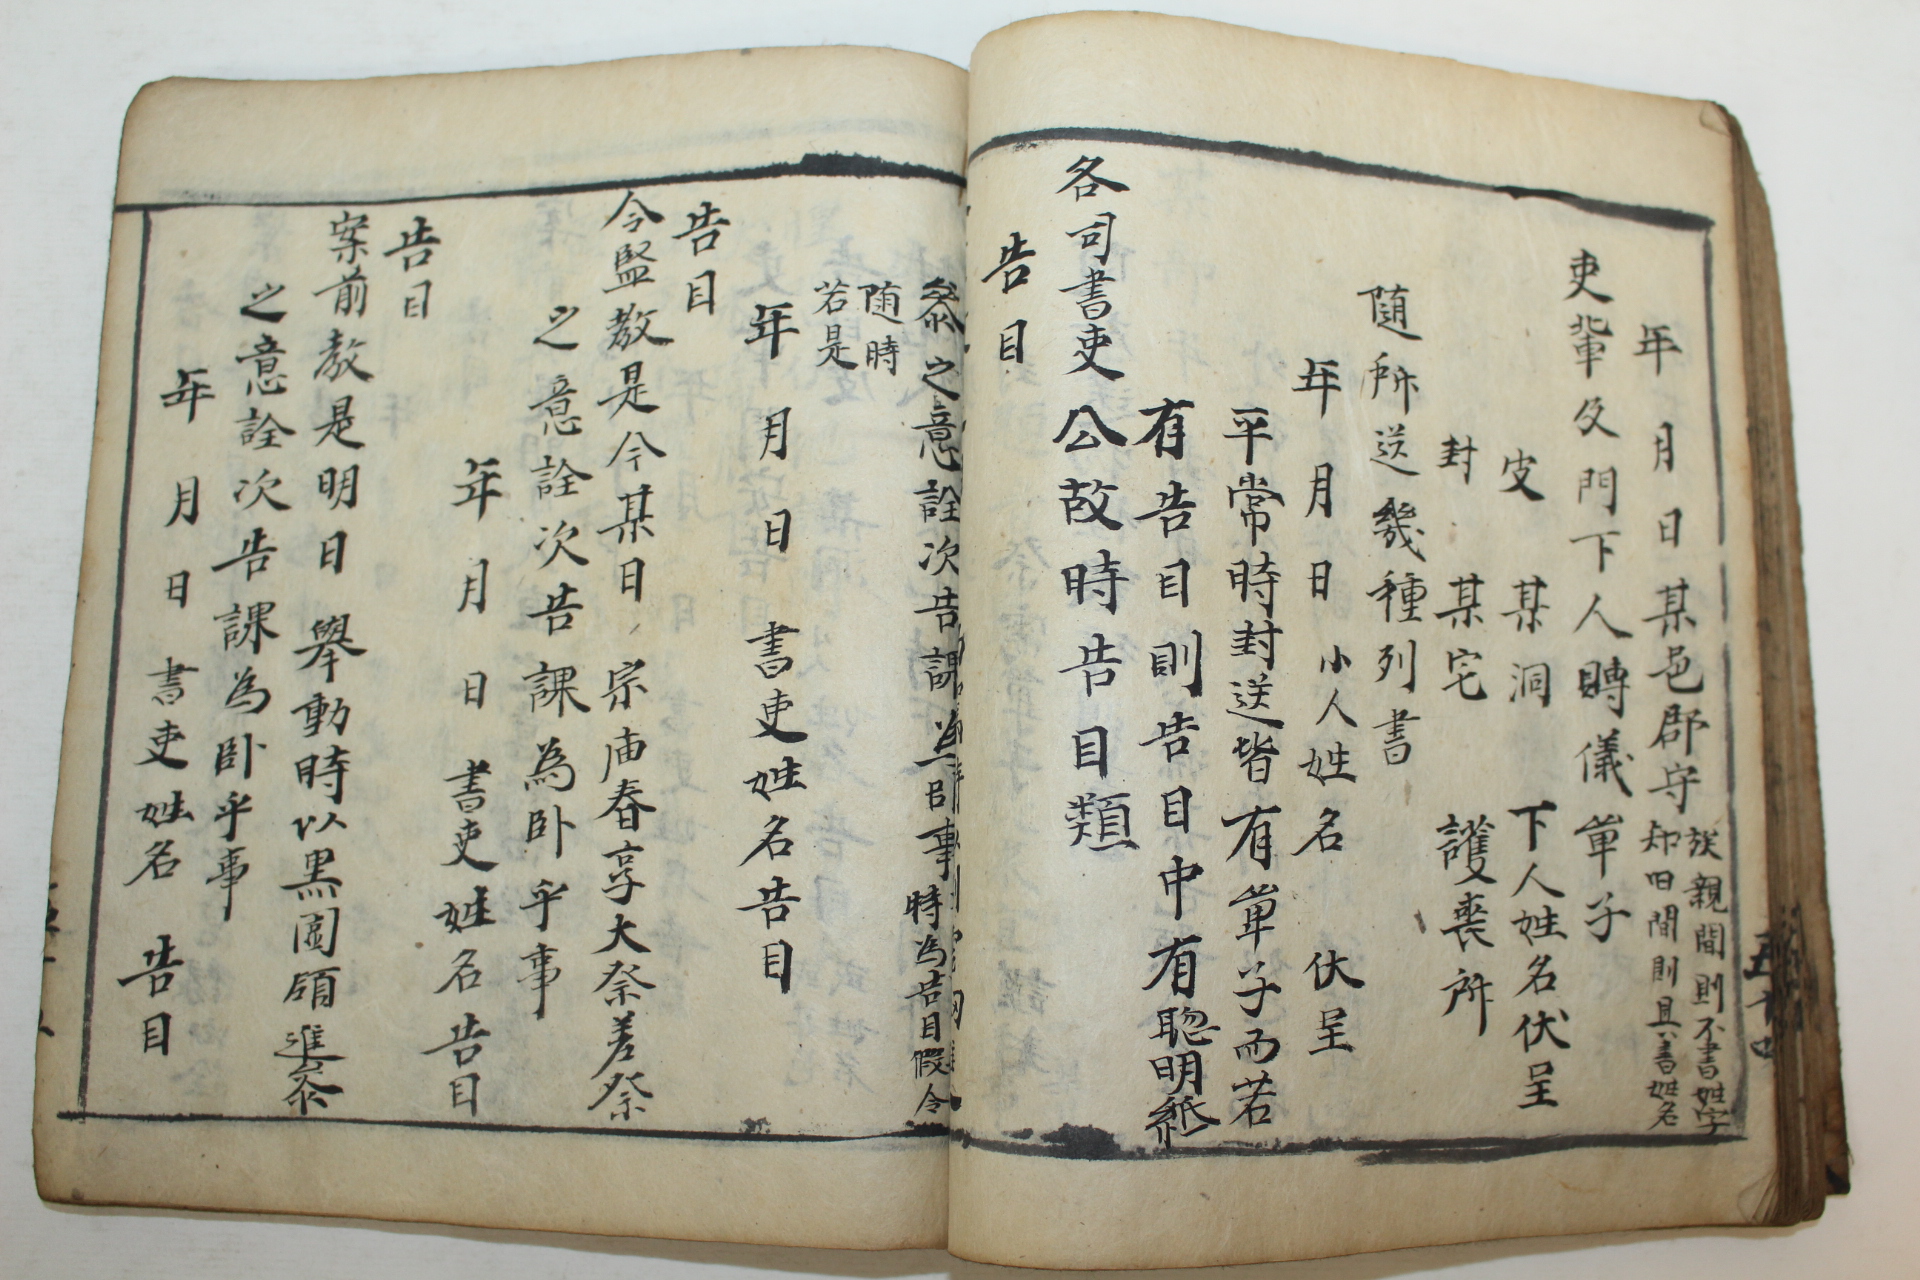 年月日某邑郡守 族親間則不書姓字
知旧間則具書姓名
吏輩及門下人賻儀單子
皮 某洞 下人姓名伏呈
封 某宅 護喪所
隨所送幾種列書
年月日 小人姓名 伏呈
平常時封送皆有單子而若
有告目則告目中有聡明紙
各司書吏公故時告目類
告目
祭之意詮次告課為卧乎事 時為告目假令
隨時
若是
年月日 書吏姓名告目
告目
令監教是今某日 宗庙春享大祭差祭
之意詮次告課為卧乎事
年月日 書吏姓名告目
告目
案前教是明日舉動時以黑團領進参
之意詮次告課為卧乎事
年月日書吏姓名 告目